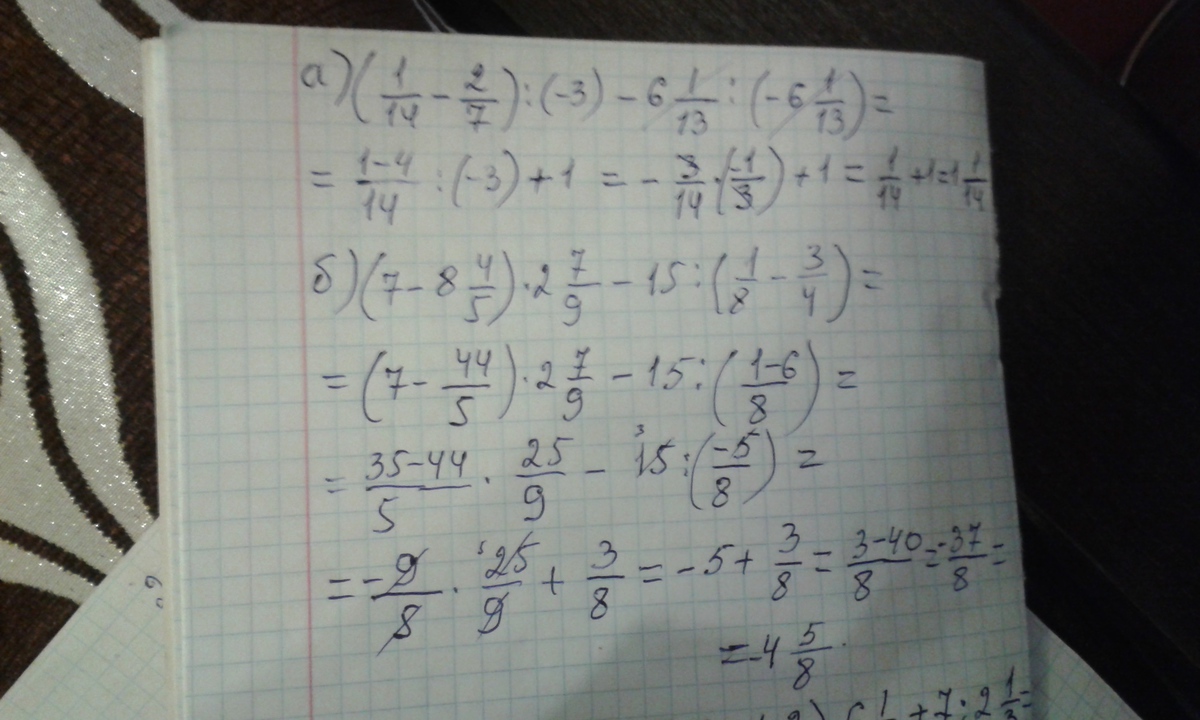 а) (1/14 − 2/7) : (−3) − 6 1/13 : (−6 1/13) =
= (1−4)/14 : (−3) + 1 = − 3/14 · (−1/3) + 1 = 1/14 + 1 = 1 1/14
б) (7 − 8 4/5) · 2 7/9 − 15 : (1/8 − 3/4) =
= (7 − 44/5) · 2 7/9 − 15 : ((1−6)/8) =
= (35−44)/5 · 25/9 − 15 3 : (−5/8) =
= − 9/8 · 5 25/9 + 3/8 = −5 + 3/8 = (3−40)/8 = −37/8 =
= −4 5/8 .
+ 7 : 2 1/3 =